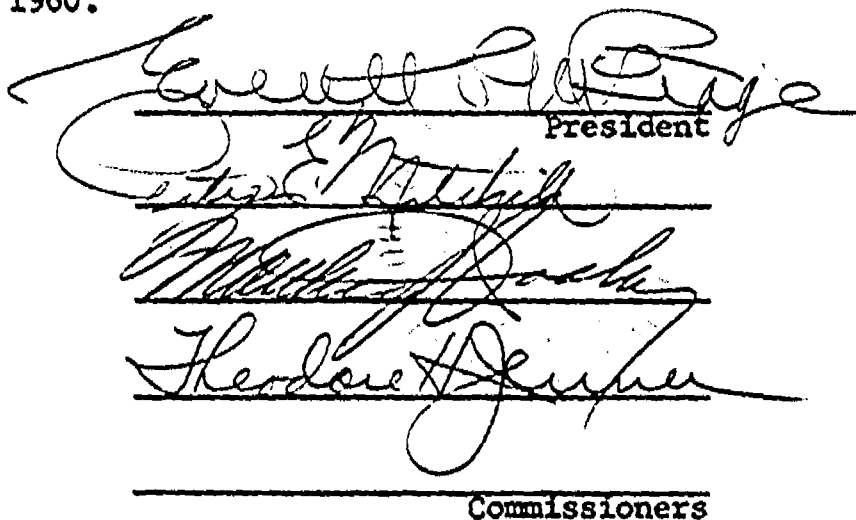 1960.
Everett C. McKeage
President
Peter E. Mitchell
Matthew J. Dooley
Theodore H Jenner
Commissioners